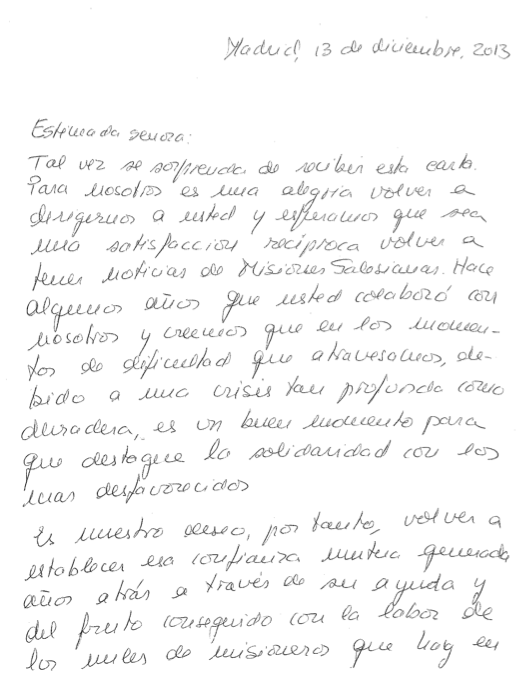 Madrid, 13 de diciembre, 2013
Estimada señora:
Tal vez se sorprenda de recibir esta carta.
Para nosotros es una alegría volver a
dirigirnos a usted y esperamos que sea
una satisfacción recíproca volver a
tener noticias de Misiones Salesianas. Hace
algunos años que usted colaboró con
nosotros y creemos que en los momen-
tos de dificultad que atravesamos, de-
bido a una crisis tan profunda como
duradera, es un buen momento para
que destaque la solidaridad con los
más desfavorecidos
Es nuestro deseo, por tanto, volver a
establecer esa confianza mutua generada
años atrás a través de su ayuda y
del fruto conseguido con la labor de
los miles de misioneros que hay en